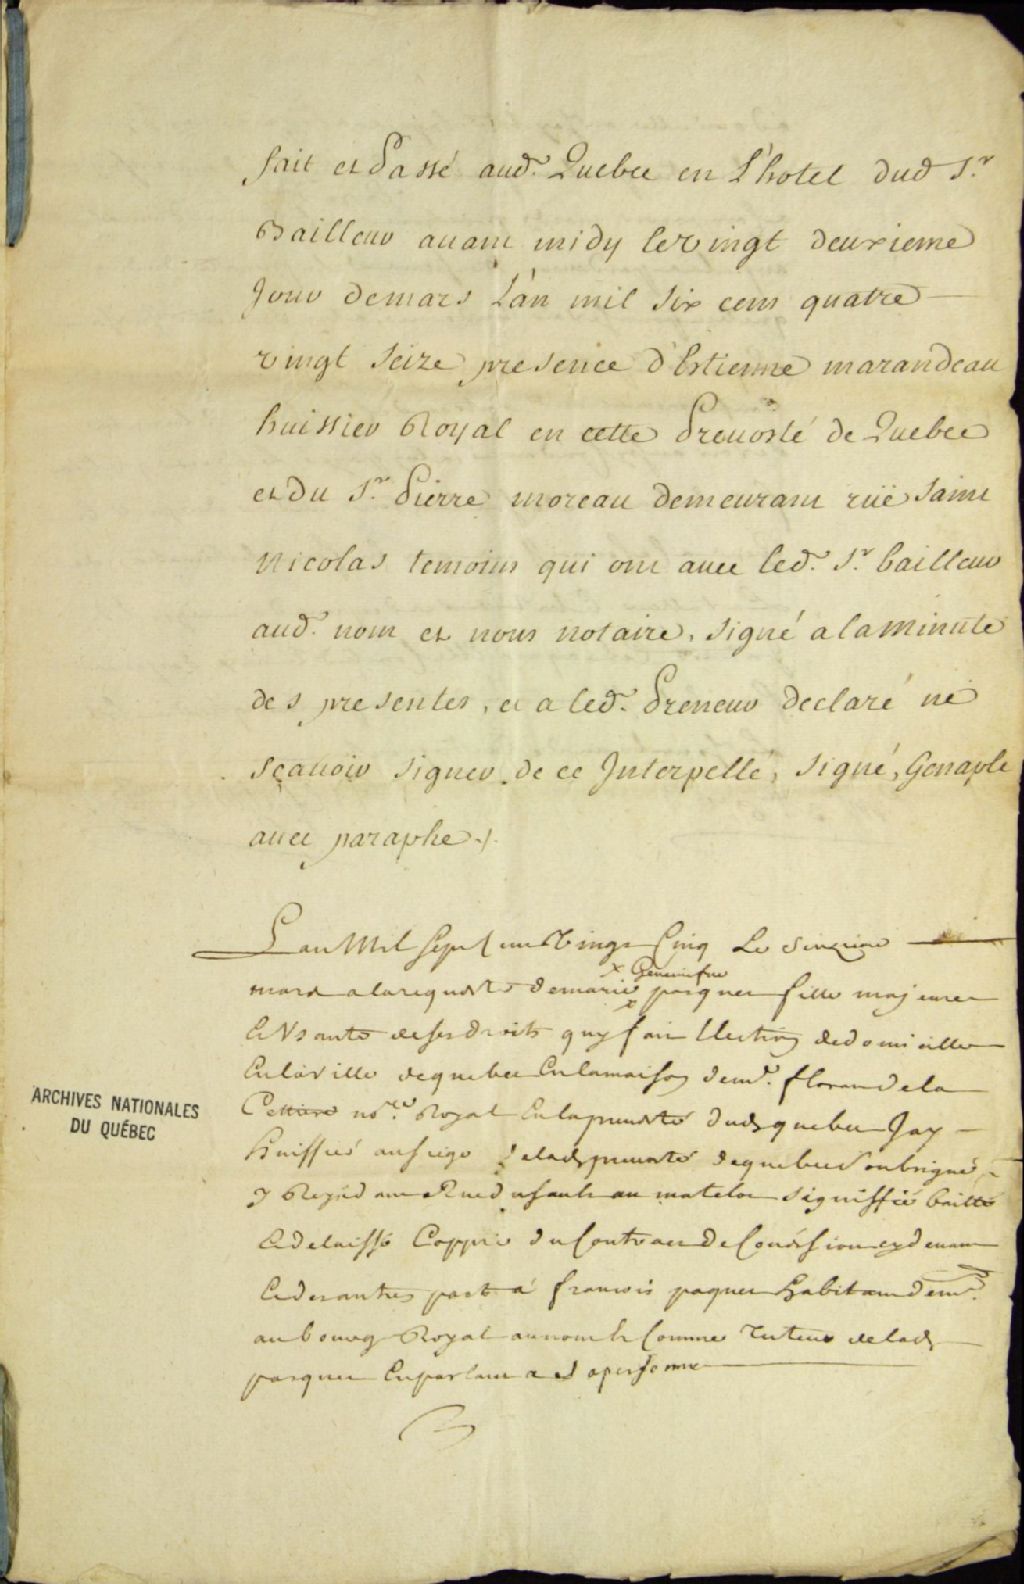 fait et Passé aud. Quebec en L'hotel dud Sr
Bailleur auant midy le vingt deuxieme
Jour de mars L'an mil six cens quatre
vingt seize presence d'Estienne marandeau
huissier Royal en cette Preuosté de Quebec
et Du Sr Pierre moreau demeurant ruë Saint
Nicolas temoins qui ont auec led. Sr bailleur
aud. nom et nous notaire, signé a la minute
des presentes, et a led. Preneur declaré ne
sçauoir signer de ce Interpellé, signé, Genaple
auec paraphe ./.
Lan Mil Sept Cent Vingt Cinq Le
mars a la requeste de marie
Geneuiefue
pasquet fille majeure
Vsante de ses droits quy fait Election de domicille
En la ville de quebec En la maison de me. floran de la
Cettiere nore Royal En la preuosté dud quebec Jay
huissié au siege de lad preuosté de quebec soubsigné
y Residant Rue du sault au matelot signiffié baillé
Et delaissé Coppie du Contract de Conession cy deuant
Et des autres part a francois paquet habitant demt.
au bourg Royal au nom Et Comme Tuteur de lad
pasquet En parlant a sa personne
ARCHIVES NATIONALES
DU QUÉBEC